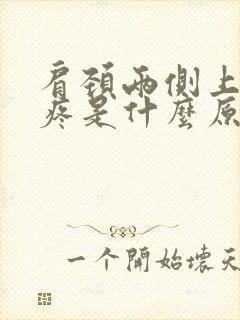 肩頸兩側上
疼是什麼原
一个開始壞天